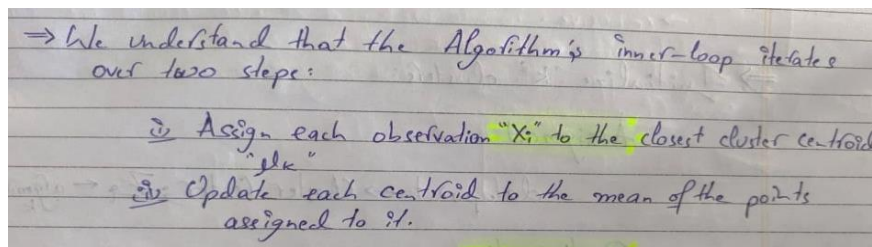 ⇒ We understand that the Algorithm's inner-loop iterates
over two steps:
i) Assign each observation "Xi" to the closest cluster centroid
"μk"
ii) Update each centroid to the mean of the points
assigned to it.